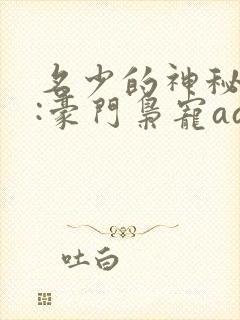 名少的神秘
:豪門梟寵aa
吐白